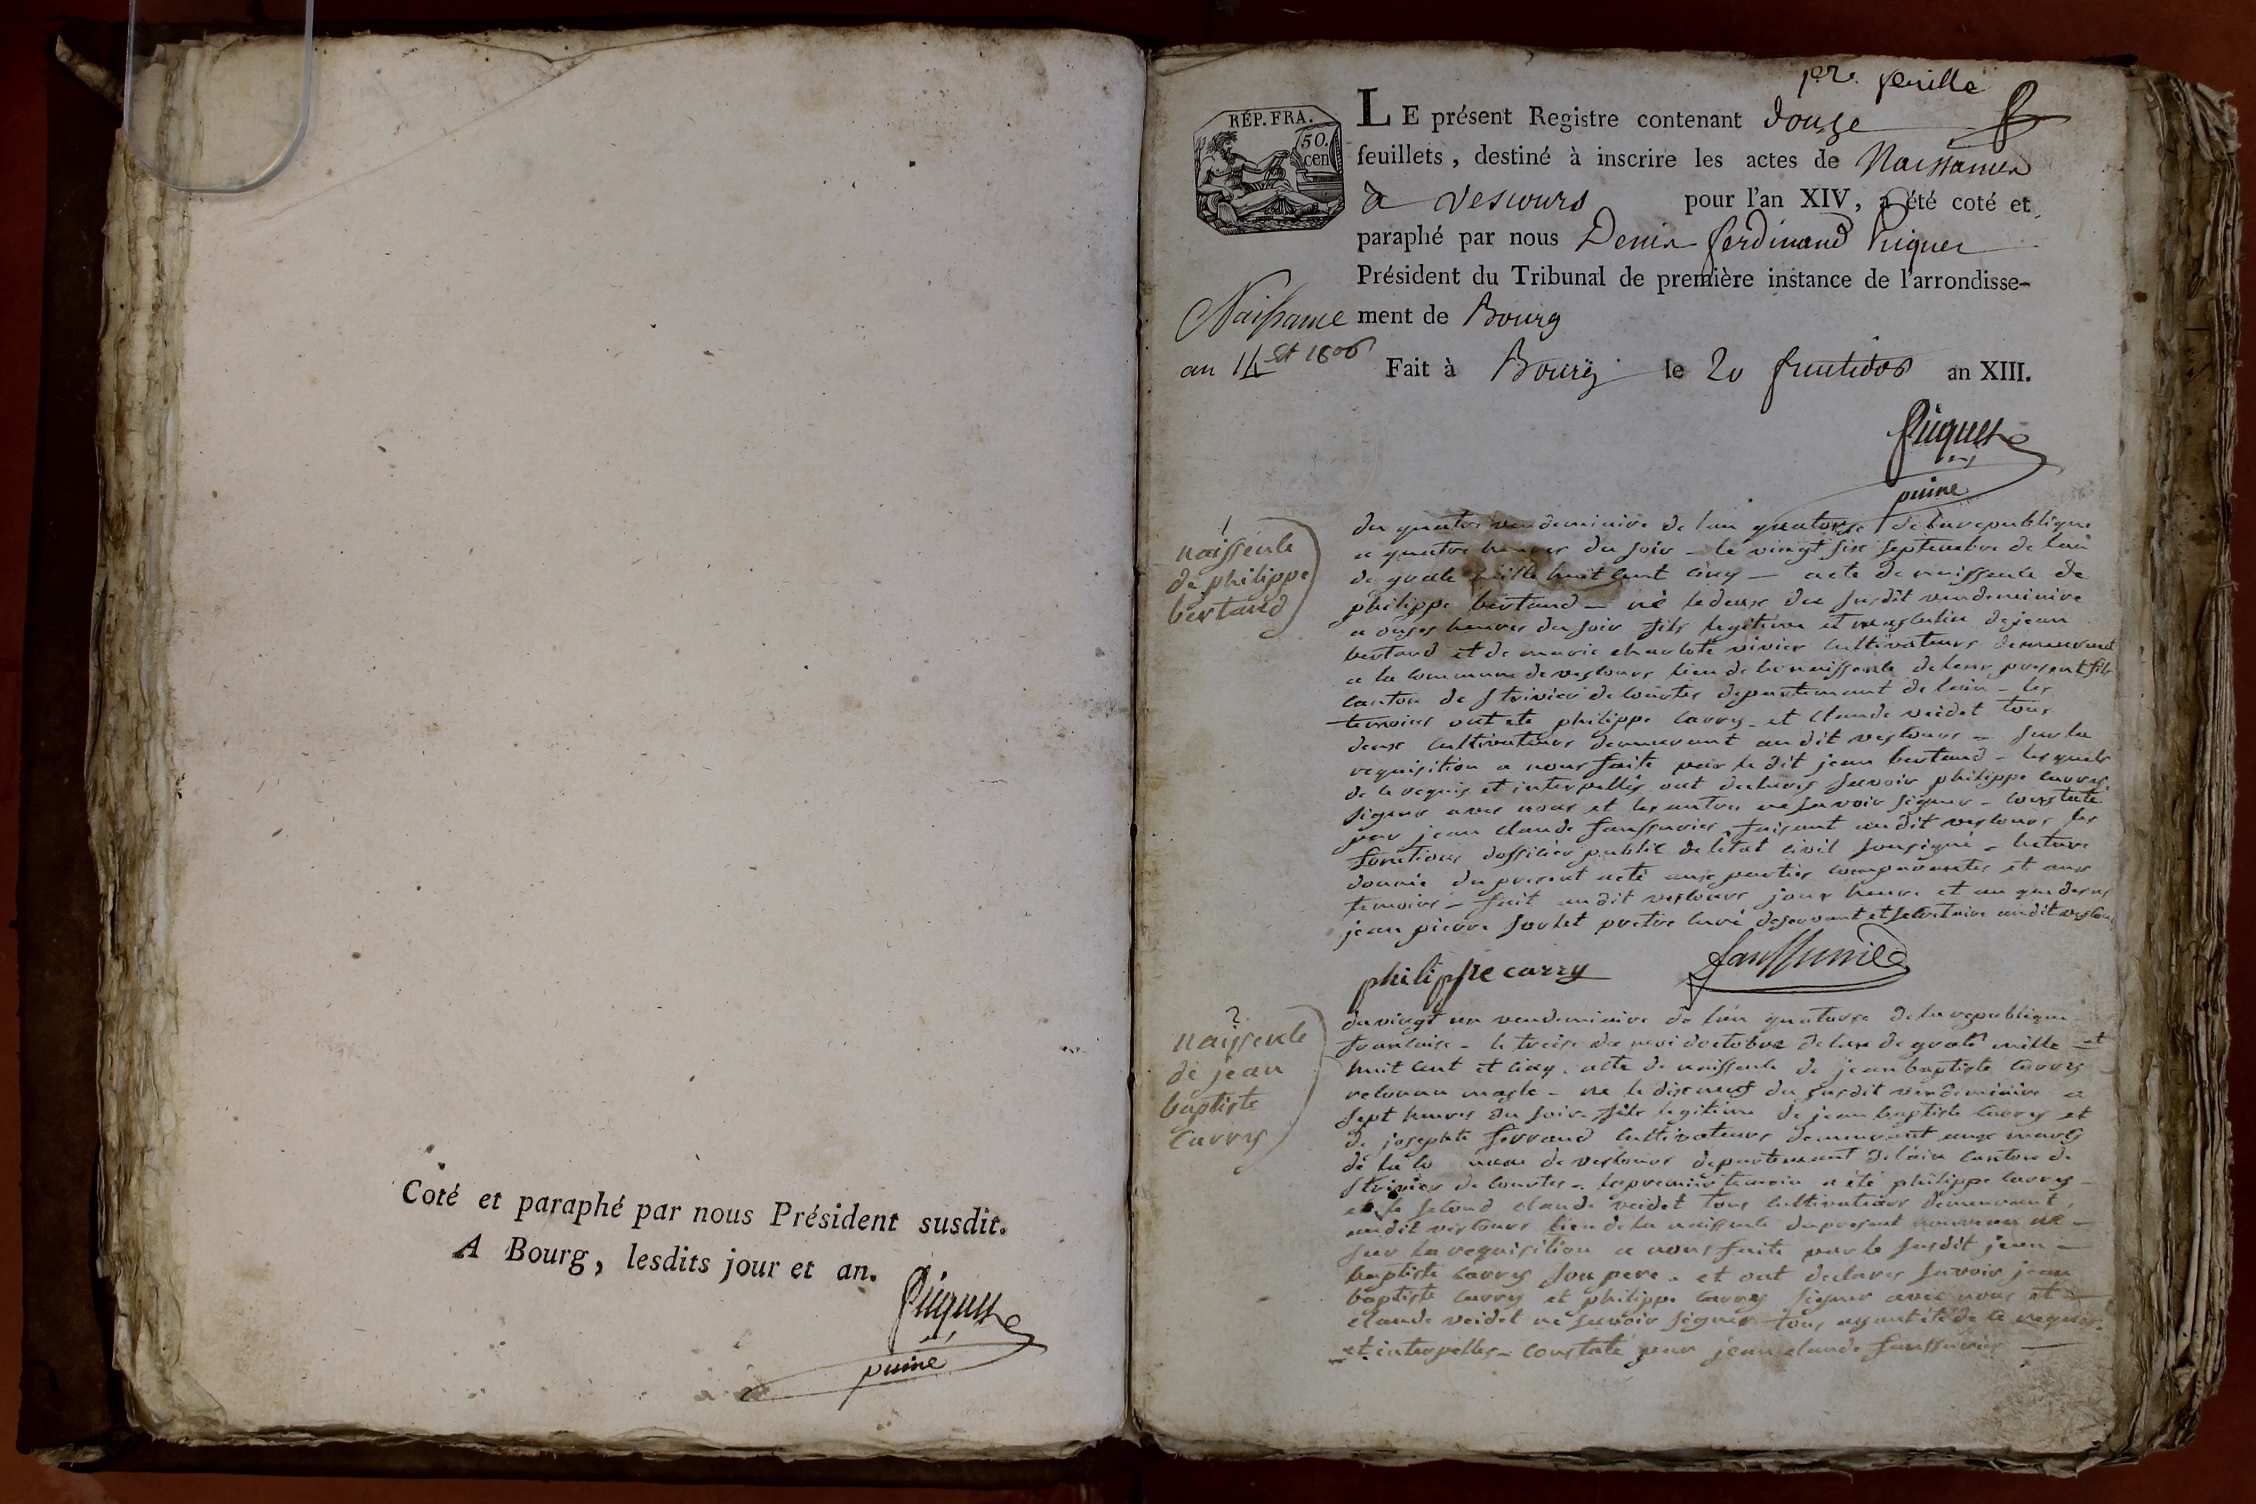 Coté et paraphé par nous Président susdit.
A Bourg, lesdits jour et an.
Piquet
puiné
1ere feuille
RÉP. FRA.
50.
cen
LE présent Registre contenant douze
feuillets, destiné à inscrire les actes de Naissances
à vescours pour l'an XIV, a été coté et
paraphé par nous Denis ferdinand Piquet
Président du Tribunal de première instance de l'arrondisse-
ment de Bourg
Naissance
an 14 et 1806
Fait à Bourg le 20 fructidor an XIII.
Piquet
puiné
1
naissence
de philippe
bertaud
du quatre vendeminire de lan quatorze de la republique
a quatre heures du soir - le vingt six septembre de lan
de grace mille huit cent cinq - acte de naissence de
philippe bertaud - né le deux du susdit vendeminire
a onzes heures du soir fils legitime et masculin de jean
bertaud et de marie charlote vivier cultivateurs demeurant
a la commune de vescours lieu de la naissence de leur present fils
canton de st trivier de courtes departement de lain - les
temoins ont ete philippe carry et claude veidet tous
deux cultivateurs demeurant au dit vescours - sur la
requisition a nous faite par le dit jean bertaud - les quels
de ce requis et interpellés ont declares savoir philippe carry
signer avec nous et les autres ne savoir signer - constaté
par jean claude faussurier faisant au dit vescours les
fonctions dofficier public de létat civil sousigné - lecture
donnée du present acte aux parties comparantes et aux
temoins - fait au dit vescours jour heure et an que desus
jean pierre sortet pretre curé deservant et secretaire au dit vescours
philippe carry faussurier
2
naissence
de jean
baptiste
carry
du vingt un vendeminire de lan quatorze de la republique
francaise - le treise du moi doctobre de lan de grace mille
huit cent et cinq. acte de naissence de jean baptiste carry
reconnu masle - né le dix neuf du susdit vendeminire a
sept heures du soir fils legitime de jean baptiste carry et
de josephte ferrand cultivateurs demeurant aux
de la de vescours departement de lain canton de
st trivier de courtes - le premier temoin a été philippe carry -
et le second claude veidet tous cultivateurs demeurant
au dit vescours lieu de la naissence du present nouveau né -
sur la requisition a nous faite par le susdit jean -
baptiste carry son pere - et ont declares savoir jean
baptiste carry et philippe carry signer avec nous et
claude veidet ne savoir signer tous ayant été de ce requis
et interpelles - constaté par jean claude faussurier